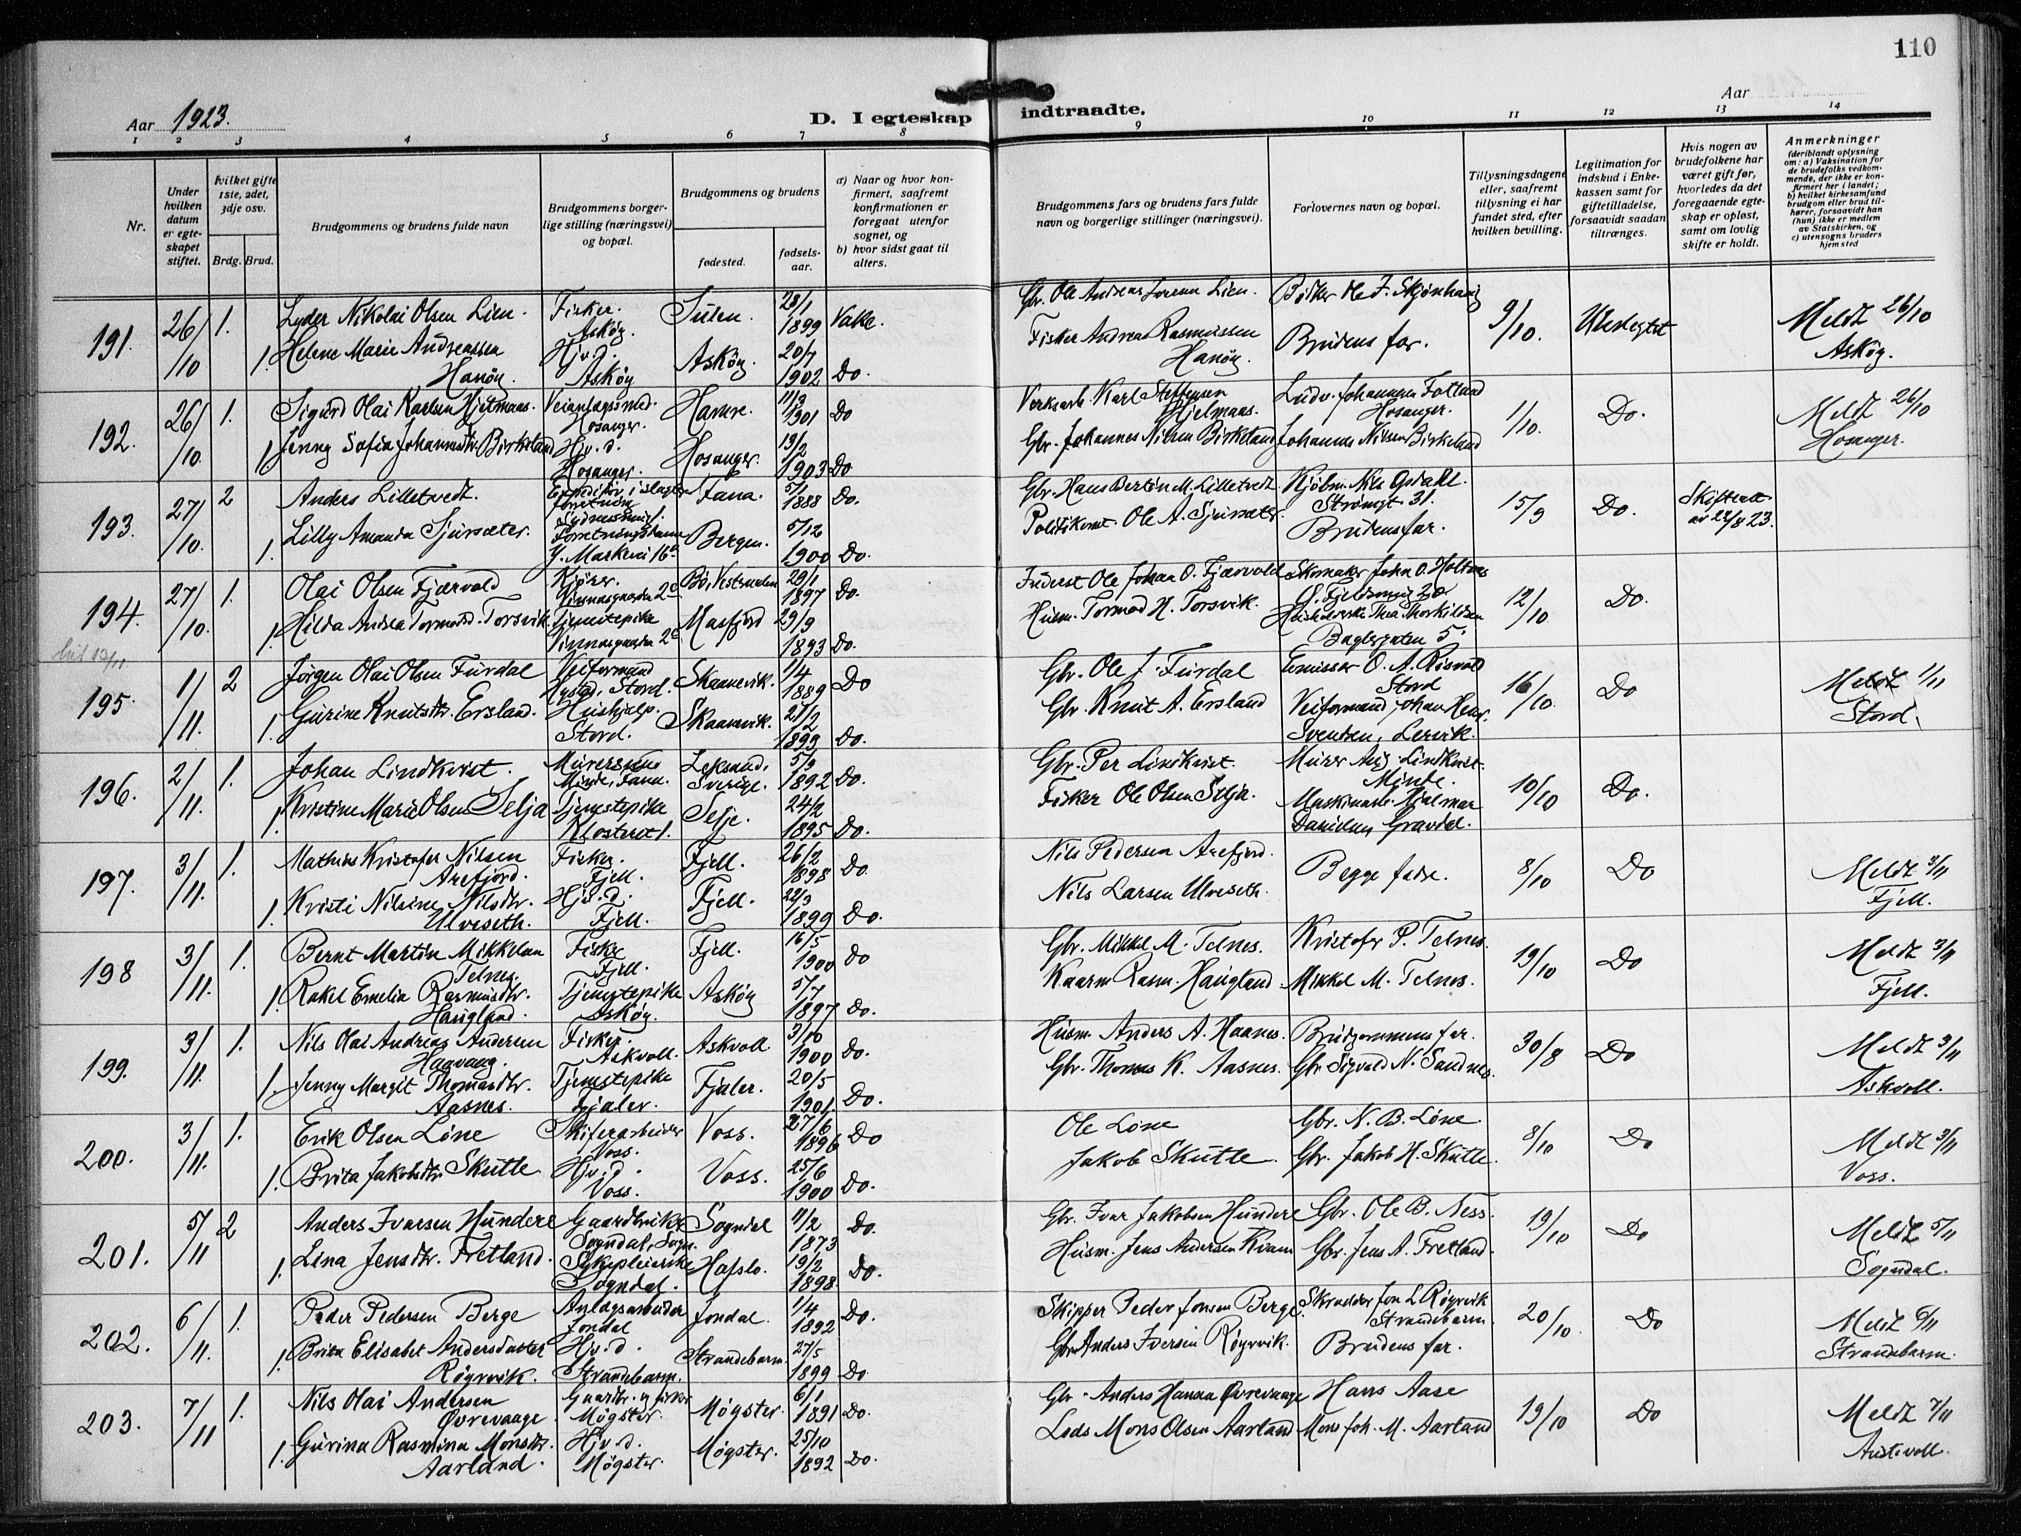 110
Aar 1923.
D. I egteskap indtraadte.
Aar
1 2 3 4 5 6 7 8 9 10 11 12 13 14
Nr.
Under hvilken datum er egteskapet stiftet.
hvilket gifte 1ste, 2det, 3dje osv.
Brdg. Brud.
Brudgommens og brudens fulde navn
Brudgommens borgerlige stilling (næringsvei) og bopæl.
Brudgommens og brudens
fødested.
fødselsaar.
a) Naar og hvor konfirmert, saafremt konfirmationen er foregaat utenfor sognet, og
b) hvor sidst gaat til alters.
Brudgommens fars og brudens fars fulde navn og borgerlige stillinger (næringsvei).
Forlovernes navn og bopæl.
Tillysningsdagene eller, saafremt tillysning ei har fundet sted, efter hvilken bevilling.
Legitimation for indskud i Enkekassen samt for giftetilladelse, forsaavidt saadan tiltrænges.
Hvis nogen av brudefolkene har været gift før, hvorledes da det foregaaende egteskap er opløst, samt om lovlig skifte er holdt.
Anmerkninger (deriblandt oplysning om: a) Vaksination for de brudefolks vedkommende, der ikke er konfirmert her i landet; b) hvilket kirkesamfund brudgom eller brud tilhører, forsaavidt han (hun) ikke er medlem av Statskirken, og c) utensogns bruders hjemsted
191. 26/10 1. Lyder Nikolai Olsen Lien. Fisker. Askøy. Sulen. 28/1 1899 Vake. Gbr. Ole Andreas Lien. Bødker Ole J. 9/10. Meldt 26/10 Askøy.
1. Helene Marie Andreassen Hanøy. Hjv.d. Askøy Askøy. 20/7 1902 Do. Fisker Andreas Rasmussen Hanøy. Brudens far.
192. 26/10. 1. Sigurd Olai Karlsen Hjelmaas. Veianlægssmed. Hosanger. Hamre. 11/3 1901 Do Verksarb. Karl Steffensen Hjelmaas. Ludv. Johannesen Fotland Hosanger. 1/10. Do. Meldt 26/10 Hosanger.
1. Jenny Sofia Johannesdtr. Birkeland Hjv.d. Hosanger. Hosanger. 19/2 1903 Do Gbr. Johannes Nilsen Birkeland Johannes Nilsen Birkeland
193. 27/10. 2 Anders Lilletvedt. Expeditør i Fana. 5/1 1888 Do. Gbr. Hans Bertin M. Lilletvedt Kjøbm. Nils Opdahl. Strømgt 31. 15/9 Do. Skifteatt. av 22/8 23.
1. Lilly Amanda Sjursæter. Y. Markevei 16 Bergen. 5/12 1900 Do. Politikonst. Ole A. Sjursæter. Brudens far.
194. 27/10. 1. Olai Olsen Fjærvold Kjører. Vinnesgaarden 2c Bø, Vestraalen 29/1 1897 Do. Inderst Ole Johan O. Fjærvold Skomaker John O. 12/10 Do.
1. Hilda Andrea Tormodsd. Torsvik. Tjenestepike Vinnesgaarden 2c Masfjord 29/9 1893 Do. Husm. Tormod H. Torsvik. Thea Thorkildsen Baglergaten 5.
195. 1/11. 2 Jørgen Olai Olsen Furdal Veiformand Stord. Skaanevik. 1/4 1889 Do Gbr. Ole J. Furdal Emissær O. A. Risvold Stord 16/10. Do Meldt 1/11 Stord.
1. Gurine Knutsdtr. Ersland. Hushjælp. Stord. Skaanevik. 1893 Do. Gbr. Knut A. Ersland Veiformand Johan Svendsen, Lervik.
196. 2/11. 1. Johan Lindkvist. Murersvend Minde, Fana. Leksand, Sverige. 5/9 1892 Do. Gbr. Per Lindkvist. Murer Aug. Lindkvist. Minde. 10/10 Do.
1. Kristine Marie Olsen Selja Tjenestepike Selje. 24/2 1895 Do. Fisker Ole Olsen Selja. Maskinarb. Hjalmar Gravdal.
197. 3/11. 1. Mathias Kristofer Nilsen Arefjord. Fisker. Fjell. Fjell. 26/2 1898 Do. Nils Pedersen Arefjord. Begge fædre. 8/10 Do Meldt 3/11 Fjell.
1. Kristi Nilsine Nilsdtr. Ulveseth. Hjv.d. Fjell. Fjell. 22/3 1899 Do. Nils Larsen Ulveseth.
198 3/11. 1. Bernt Martin Mikkelsen Telnes. Fisker Fjell. Fjell. 16/5 1900 Do Gbr. Mikkel M. Telnes. Kristofer P. Telnes. 19/10 Do Meldt 3/11 Fjell.
1. Rakel Emelia Rasmusdtr. Haugland. Tjenestepike Askøy. Askøy 5/7 1897 Do. Kaarm. Rasm. Haugland Mikkel M. Telnes.
199. 3/11. 1. Nils Olai Andreas Andersen Haavaag. Fisker Askvoll. Askvoll 3/10 1900 Do. Husm. Anders A. Haanes. Brudgommens far. 30/8 Do Meldt 3/11 Askvoll.
1. Jenny Margit Thomasdtr. Aasnes. Tjenestepike Fjaler. Fjaler. 20/5 1901. Do. Gbr. Thomas K. Aasnes. Gbr. Sigvald N. Sandnes.
200. 3/11. 1. Erik Olsen Løne Skiferarbeider Voss. Voss. 27/6 1896 Do Ole Løne Gbr. N. B. Løne 8/10 Do Meldt 3/11 Voss.
1. Brita Jakobsdtr. Skutle. Hjv.d. Voss. Voss. 25/6 1900 Do. Jakob Skutle. Gbr. Jakob H. Skutle.
201. 5/11 2 Anders Ivarsen Hundere Gaardbruker Sogndal, Sogn. Sogndal 11/2 1873 Do. Gbr. Ivar Jakobsen Hundere Gbr. Ole B. Ness. 19/10 Do Meldt 5/11 Sogndal.
1. Lina Jensdtr. Fretland. Sykepleierske Sogndal. Hafslo. 19/2 1898. Do. Husm. Jens Andersen Kvam Gbr. Jens A. Fretland.
202. 6/11. 1. Peder Pedersen Berge Anlægsarbeider Jondal Jondal. 1/4 1892 Do. Skipper Peder Jonsen Berge. Skrædder Jon L. Røyrvik Strandebarm. 20/10 Do Meldt 6/11 Strandebarm.
1. Brita Elisabet Andersdatter Røyrvik. Hjv.d. Strandebarm. Strandebarm. 27/5 1899 Do Gbr. Anders Iversen Røyrvik. Brudens far.
203. 7/11 1. Nils Olai Andersen Øvrevaage Gaardbr. og fisker Møgster. Møgster. 6/1 1891 Do. Gbr. Anders Hansen Øvrevaage Hans Aase 19/10 Do Meldt 7/11 Austevoll.
1. Gurina Rasmina Monsdtr. Aarland. Hjv.d. Møgster. Møgster. 25/10 1892 Do. Lods Mons Olsen Aarland Mons Joh. M. Aarland